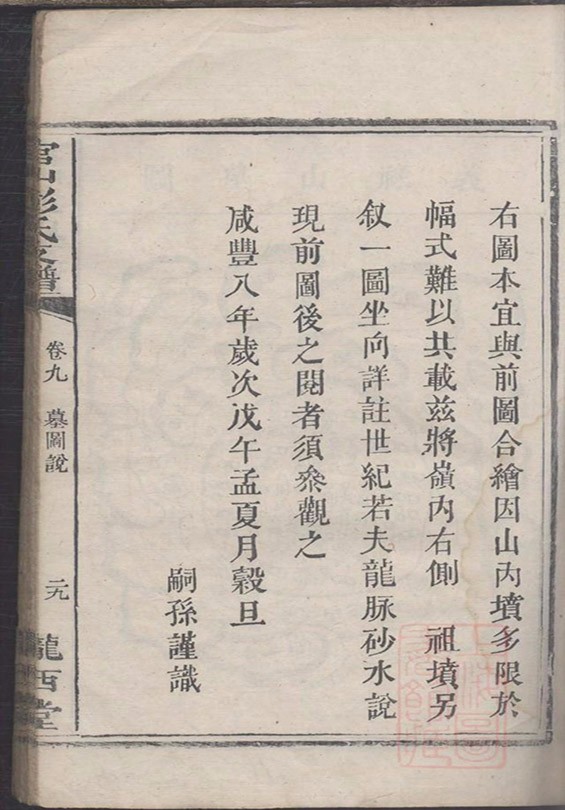 右圖本宜與前圖合繪因山內墳多限於
幅式難以共載茲將嶺內右側　祖墳另
叙一圖坐向詳註世紀若夫龍脉砂水說
現前圖後之閱者須叅觀之
咸豐八年歲次戊午孟夏月穀旦
嗣孫謹識
彭氏支譜
卷九　墓圖說
二九
隴西堂